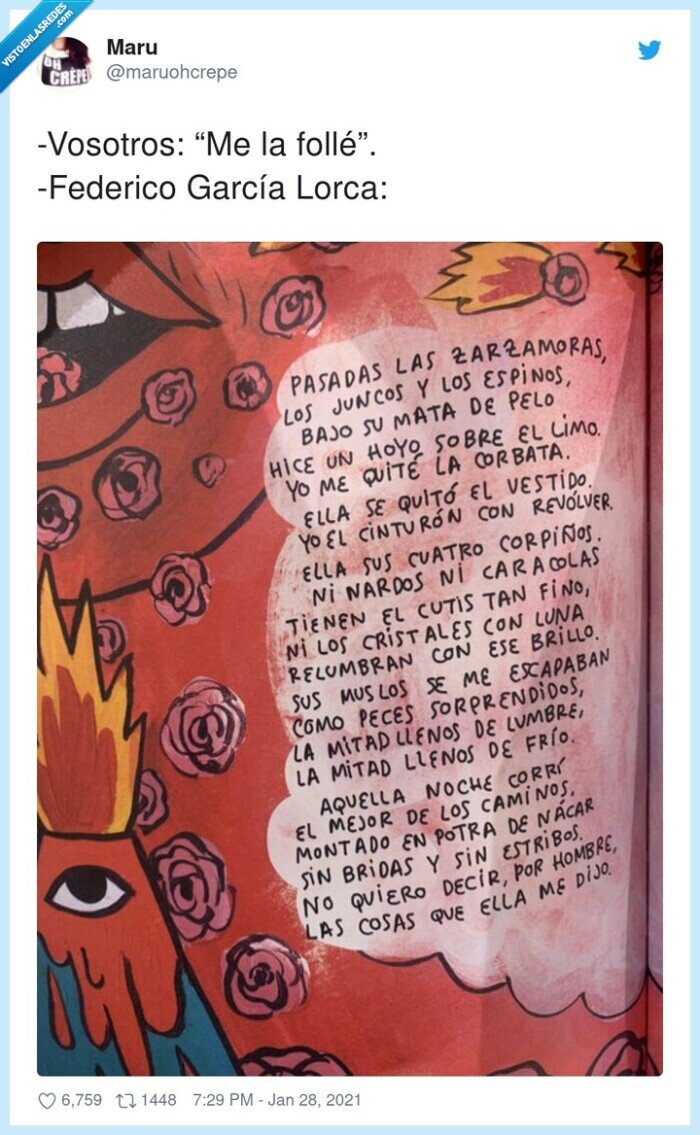 VISTOENLASREDES
.com
OH
CRÊPE
Maru
@maruohcrepe
-Vosotros: “Me la follé”.
-Federico García Lorca:
PASADAS LAS ZARZAMORAS,
LOS JUNCOS Y LOS ESPINOS,
BAJO SU MATA DE PELO
HICE UN HOYO SOBRE EL LIMO.
YO ME QUITÉ LA CORBATA.
ELLA SE QUITÓ EL VESTIDO.
YO EL CINTURÓN CON REVÓLVER.
ELLA SUS CUATRO CORPIÑOS.
NI NARDOS NI CARACOLAS
TIENEN EL CUTIS TAN FINO,
NI LOS CRISTALES CON LUNA
RELUMBRAN CON ESE BRILLO.
SUS MUSLOS SE ME ESCAPABAN
COMO PECES SORPRENDIDOS,
LA MITAD LLENOS DE LUMBRE,
LA MITAD LLENOS DE FRÍO.
AQUELLA NOCHE CORRÍ
EL MEJOR DE LOS CAMINOS,
MONTADO EN POTRA DE NÁCAR
SIN BRIDAS Y SIN ESTRIBOS.
NO QUIERO DECIR, POR HOMBRE,
LAS COSAS QUE ELLA ME DIJO.
6,759 1448 7:29 PM - Jan 28, 2021